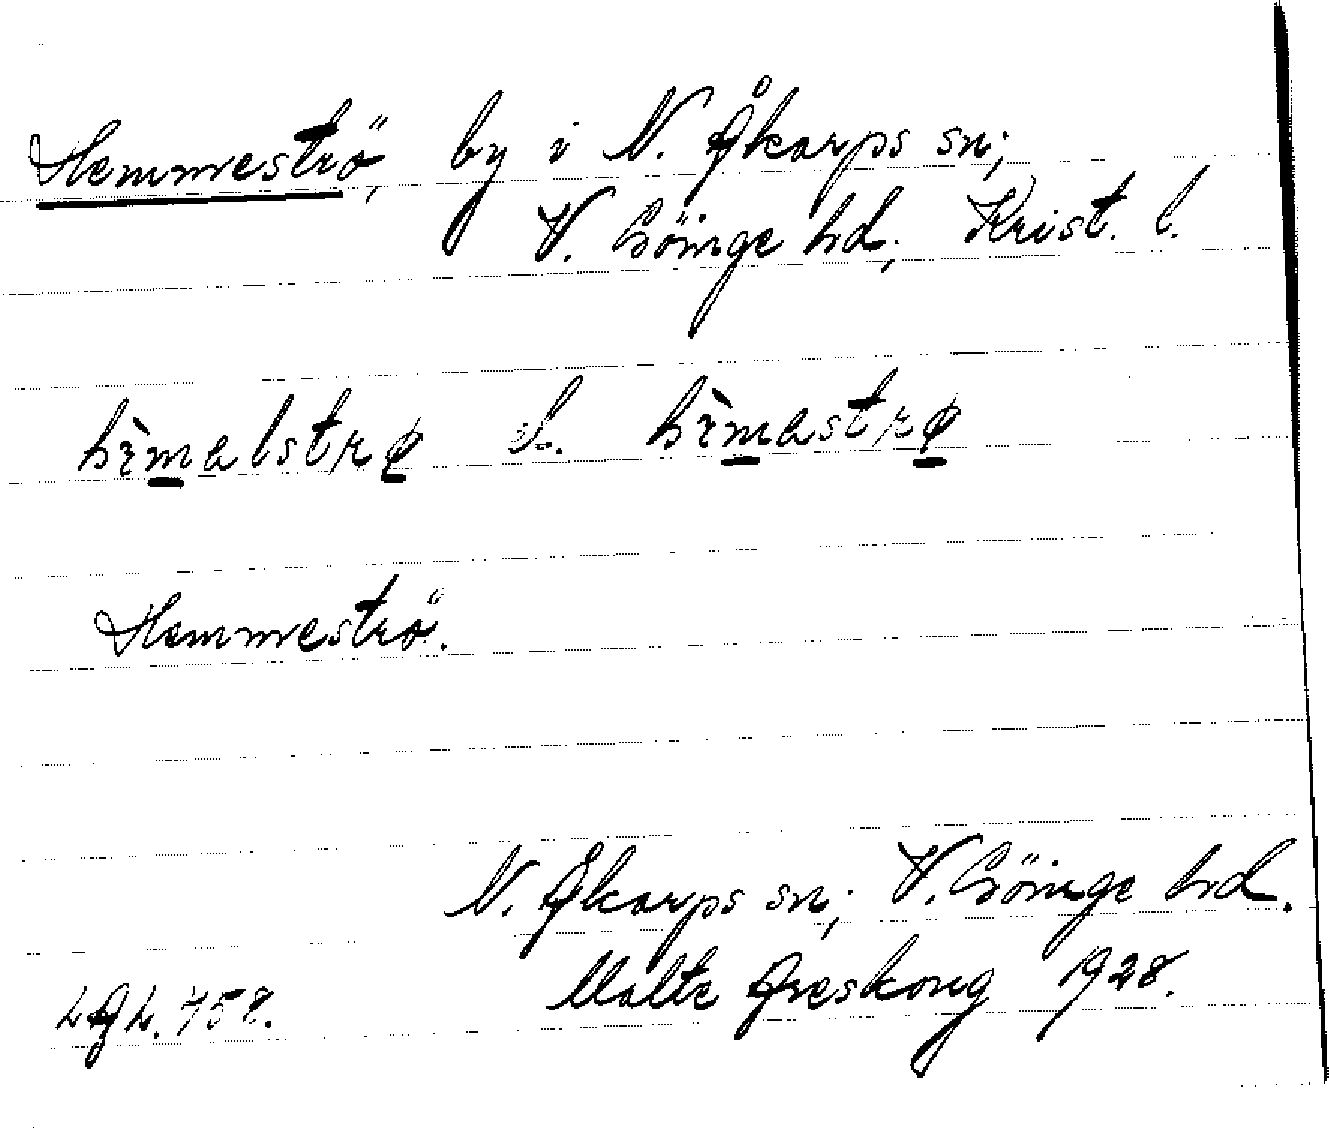 Hemmeströ, by i N. Åkarps sn;
V. Göinge hd, Krist. l.
hèmalstrø l. hèmastrø
Hemmeströ.
N. Åkarps sn; V. Göinge hd.
Malte Areskoug 1928.
LAL. 758.